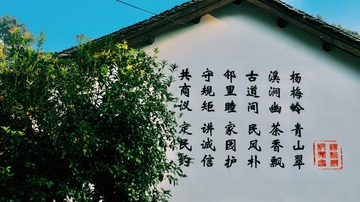 杨梅岭 青山翠
溪涧幽 茶香飘
古道间 民风朴
邻里睦 家园护
守规矩 讲诚信
共商议 定民约